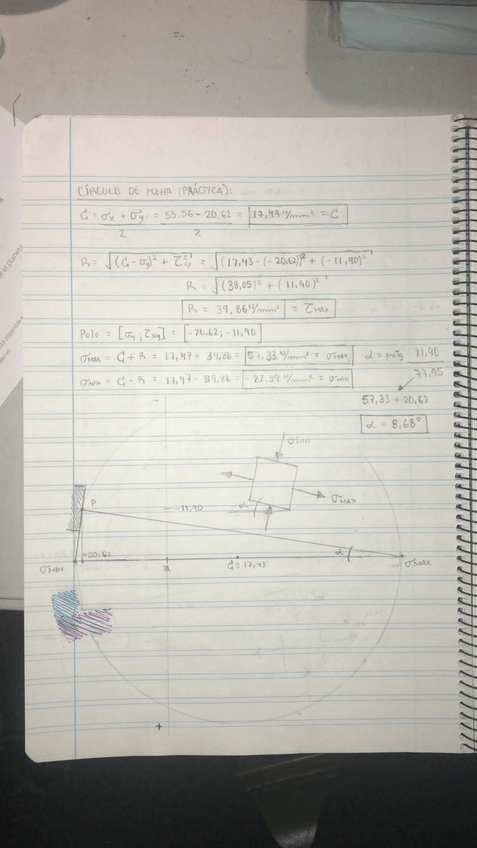 CÍRCULO DE MOHR (PRÁCTICA):
G = σx + σy = 55,56 - 20,62 = 17,47 N/mm² = G
2 2
R = √(G - σy)² + τxy² = √(17,43 - (-20,62))² + (-11,90)²
R = √(38,05)² + (11,90)²
R = 39,86 N/mm² = τMAX
Polo = [σy ; τxy] = [-20,62; -11,90]
σMAX = G + R = 17,47 + 39,86 = 57,33 N/mm² = σMAX α = arctg 11,90
77,95
σMIN = G - R = 17,47 - 39,86 = -22,39 N/mm² = σMIN
57,33 + 20,62
α = 8,68°
-
σMIN
σMAX
α
P
-11,90
α
-20,62
σMIN
G = 17,43
σMAX
+